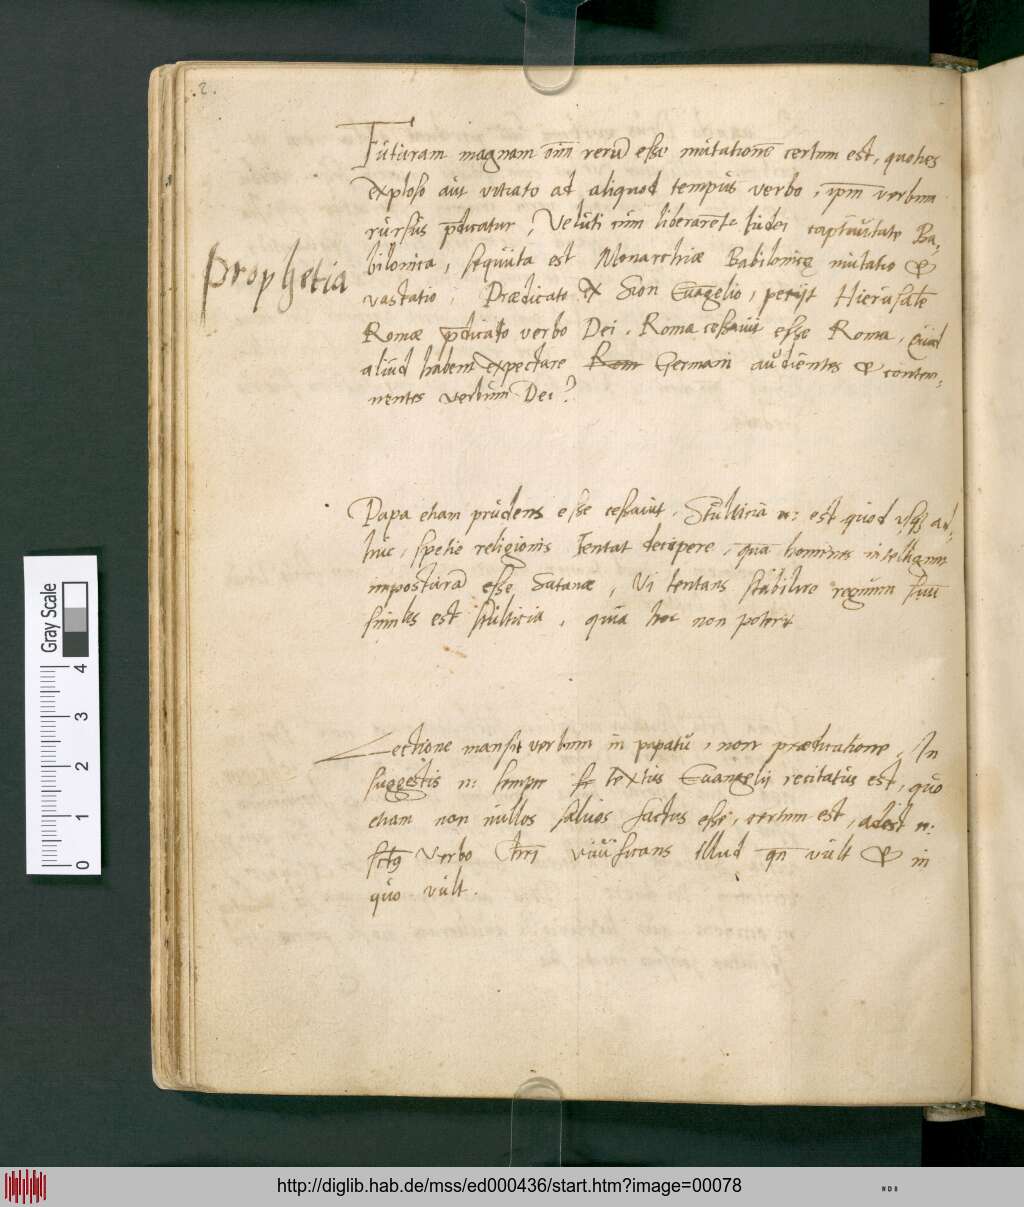 2.
Futuram magnam om̅i̅ reru̅ esse mutatione̅ certum est, quoties
exploso aut vitiato ad aliquod tempus verbo, ip̅m verbum
rursus p̅dicatur, Veluti cu̅m liberare̅t~ Iudei captiuitate Ba,
Prophetia
bilonica, sequuta est Monarchiæ Babilonicę mutatio &
vastatio, Prædicato ex Sion Eua̅gelio, perijt Hierusale̅
Romæ p̅dicato verbo Dei, Roma cessauit esse Roma, Quid
aliud habent expectare Rom Germani audientes & contem,
nentes verbum Dei?
Papa etiam prudens esse cessauit. Stulticia n: est quod vsq3 ad
huc, spetie religionis Tentat decipere, qua̅ homines intelligunt
imposturā esse Satanæ, Vi tentans stabilire regnum suu̅
similis est stulticia, quia hoc non poterit
Lectione mansit verbum in papatu, non prædicatione, In
suggestis n: semper textus Euangelij recitatus est, quo
etiam non nullos saluos factus esse, certum est, adest n:
verbo viuificans illud qn̅ vult & in
quo vult.
Gray Scale
0 1 2 3 4
http://diglib.hab.de/mss/ed000436/start.htm?image=00078